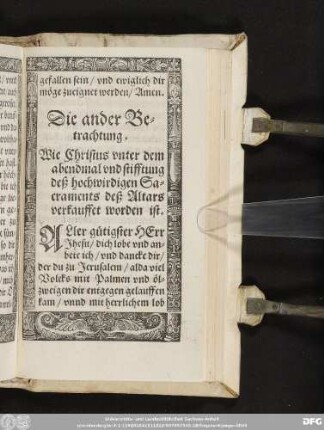 gefallen sein / vnd ewiglich dir
möge zueignet werden / Amen.
Die ander Be-
trachtung.
Wie Christus vnter dem
abendmal vnd stifftung
deß hochwirdigen Sa-
craments deß Altars
verkauffet worden ist.
Aller gütigster HErr
Jhesu / dich lobe vnd an-
bete ich / vnd dancke dir /
der du zu Jerusalem / alda viel
Volcks mit Palmen vnd öl-
zweigen dir entgegen gelauffen
kam / vnnd mit herrlichem lob
DFG